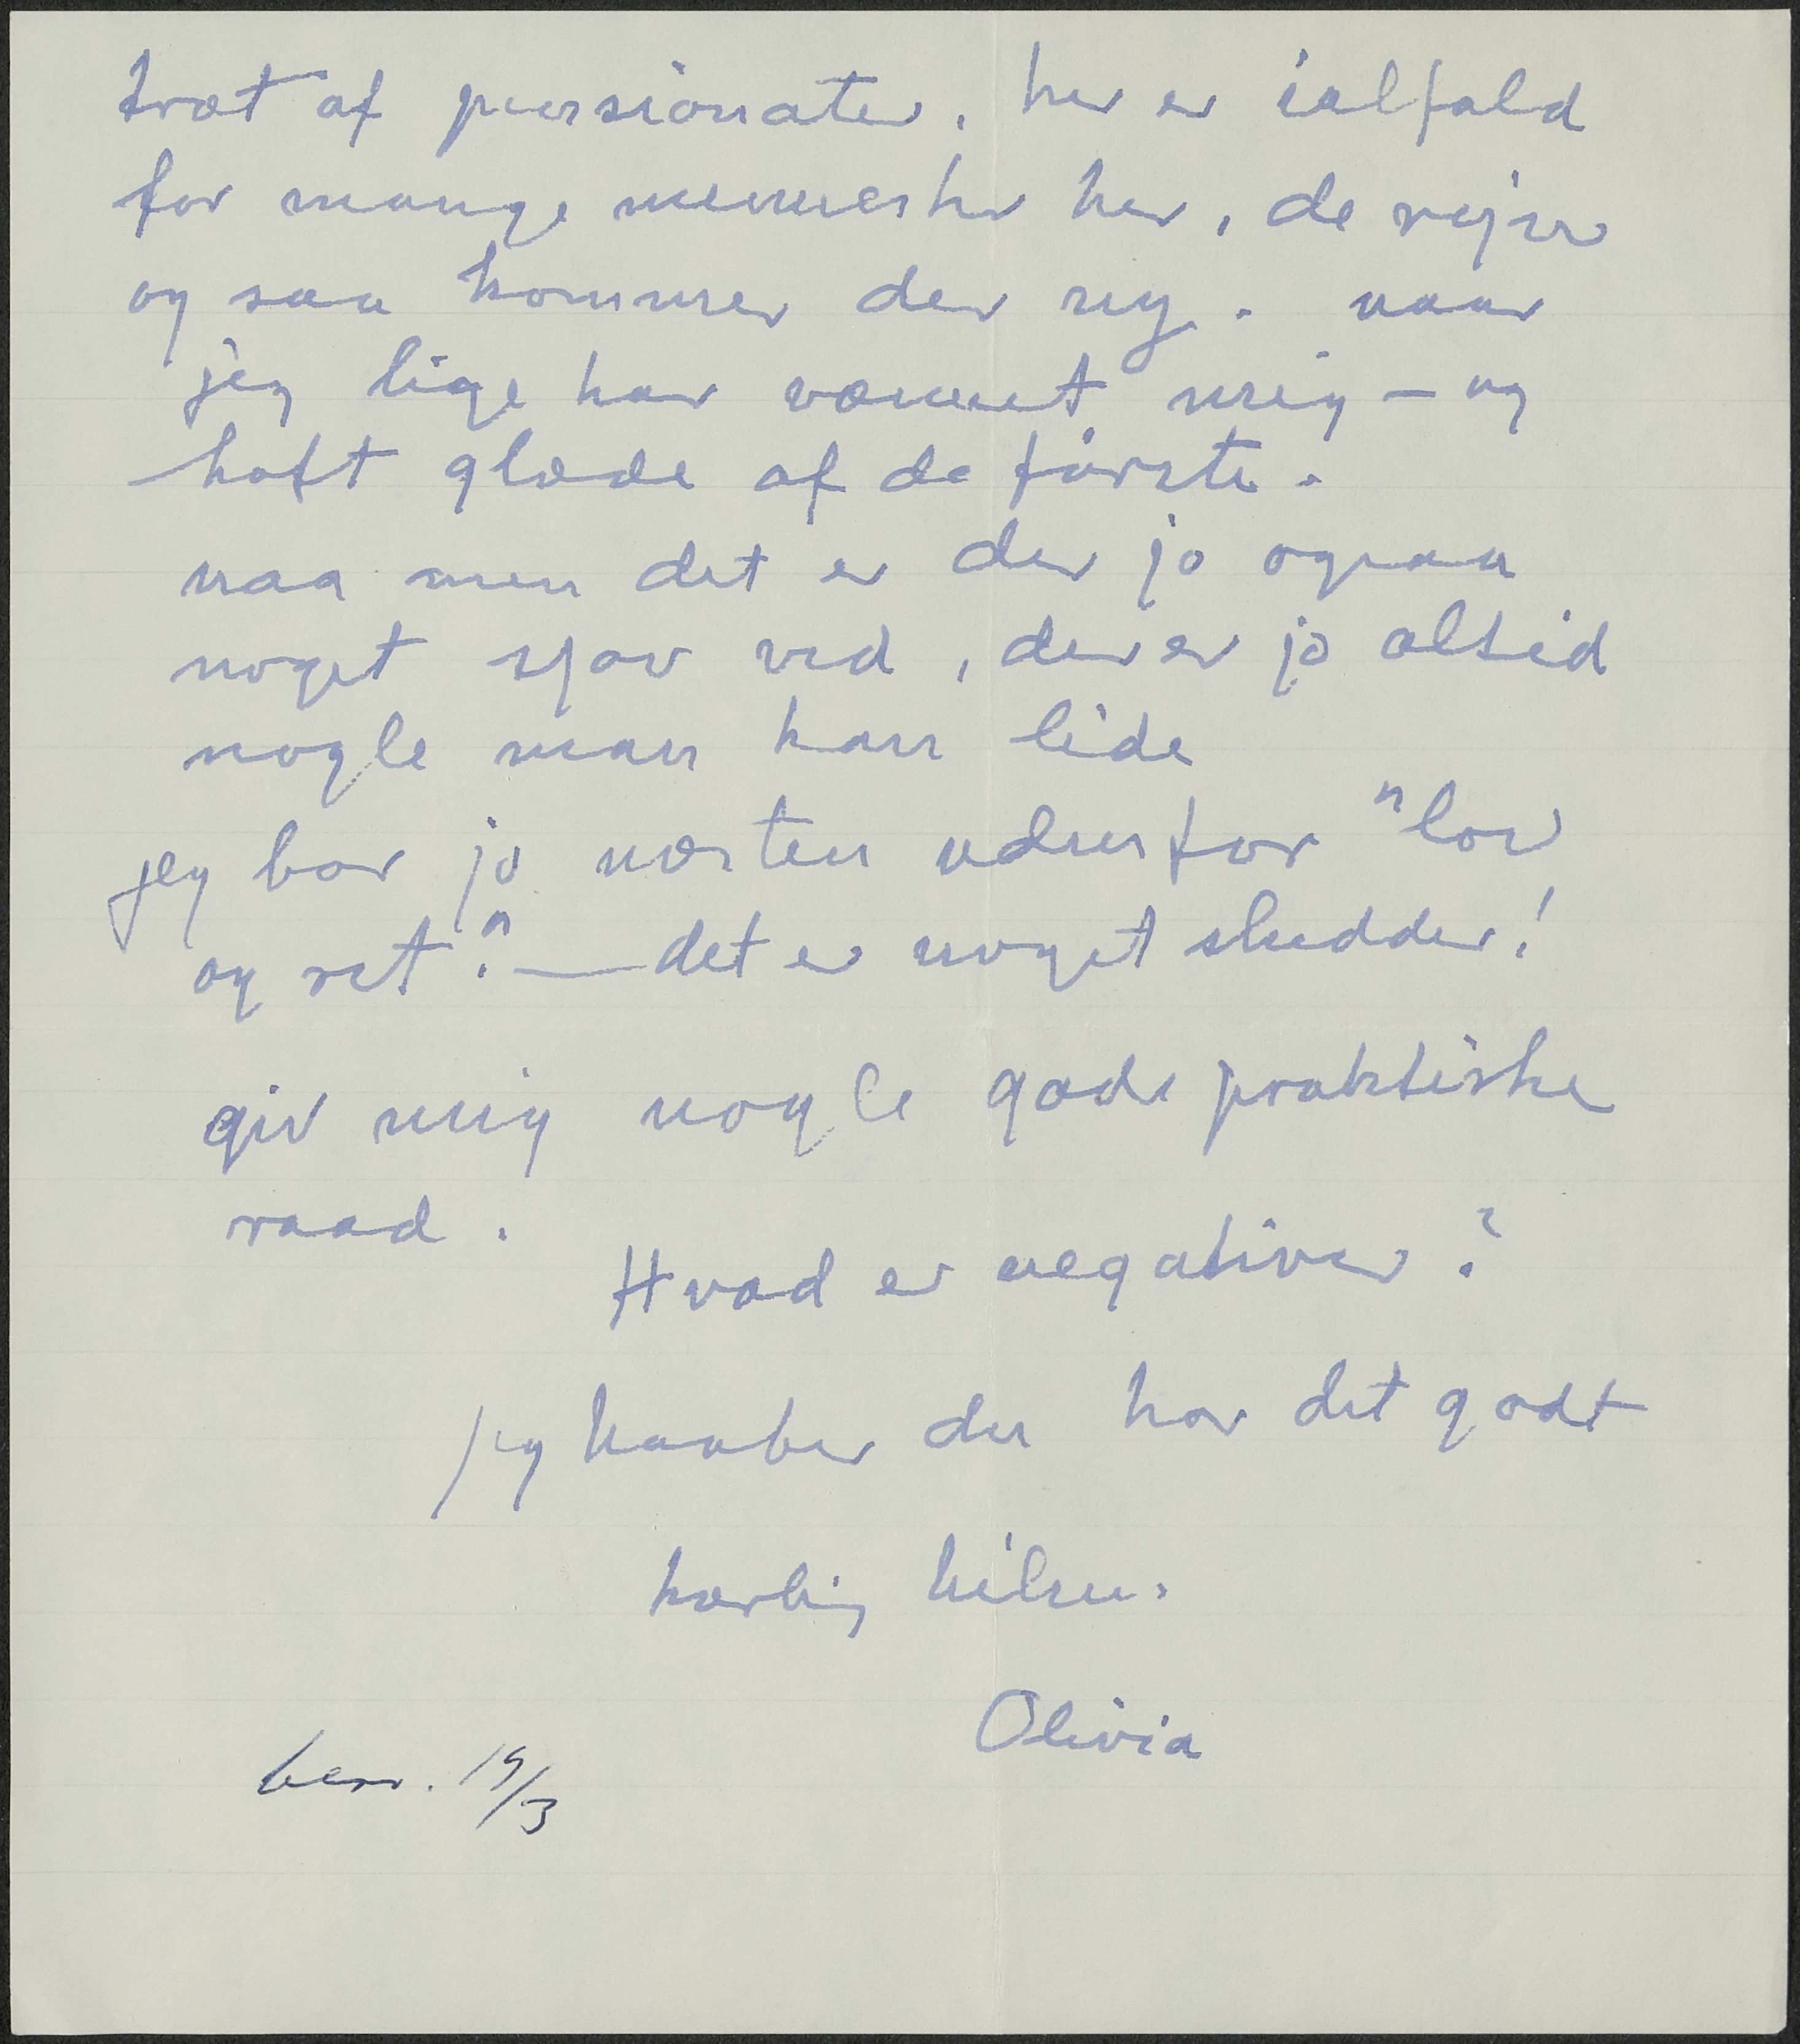 træt af pensionater, her er ialfald
for mange mennesker her, de rejser
og saa kommer der ny. naar
jeg lige har vænnet mig – og
haft glæde af de første.
naa men det er der jo ogsaa
noget sjov ved, der er jo altid
nogle man kan lide
jeg bor jo næsten udenfor "lov
og ret?" — det er noget sludder!
giv mig nogle gode praktiske
raad.
Hvad er negativer?
jeg haaber du har det godt
kærlig hilsen.
Olivia
besv. 19/3